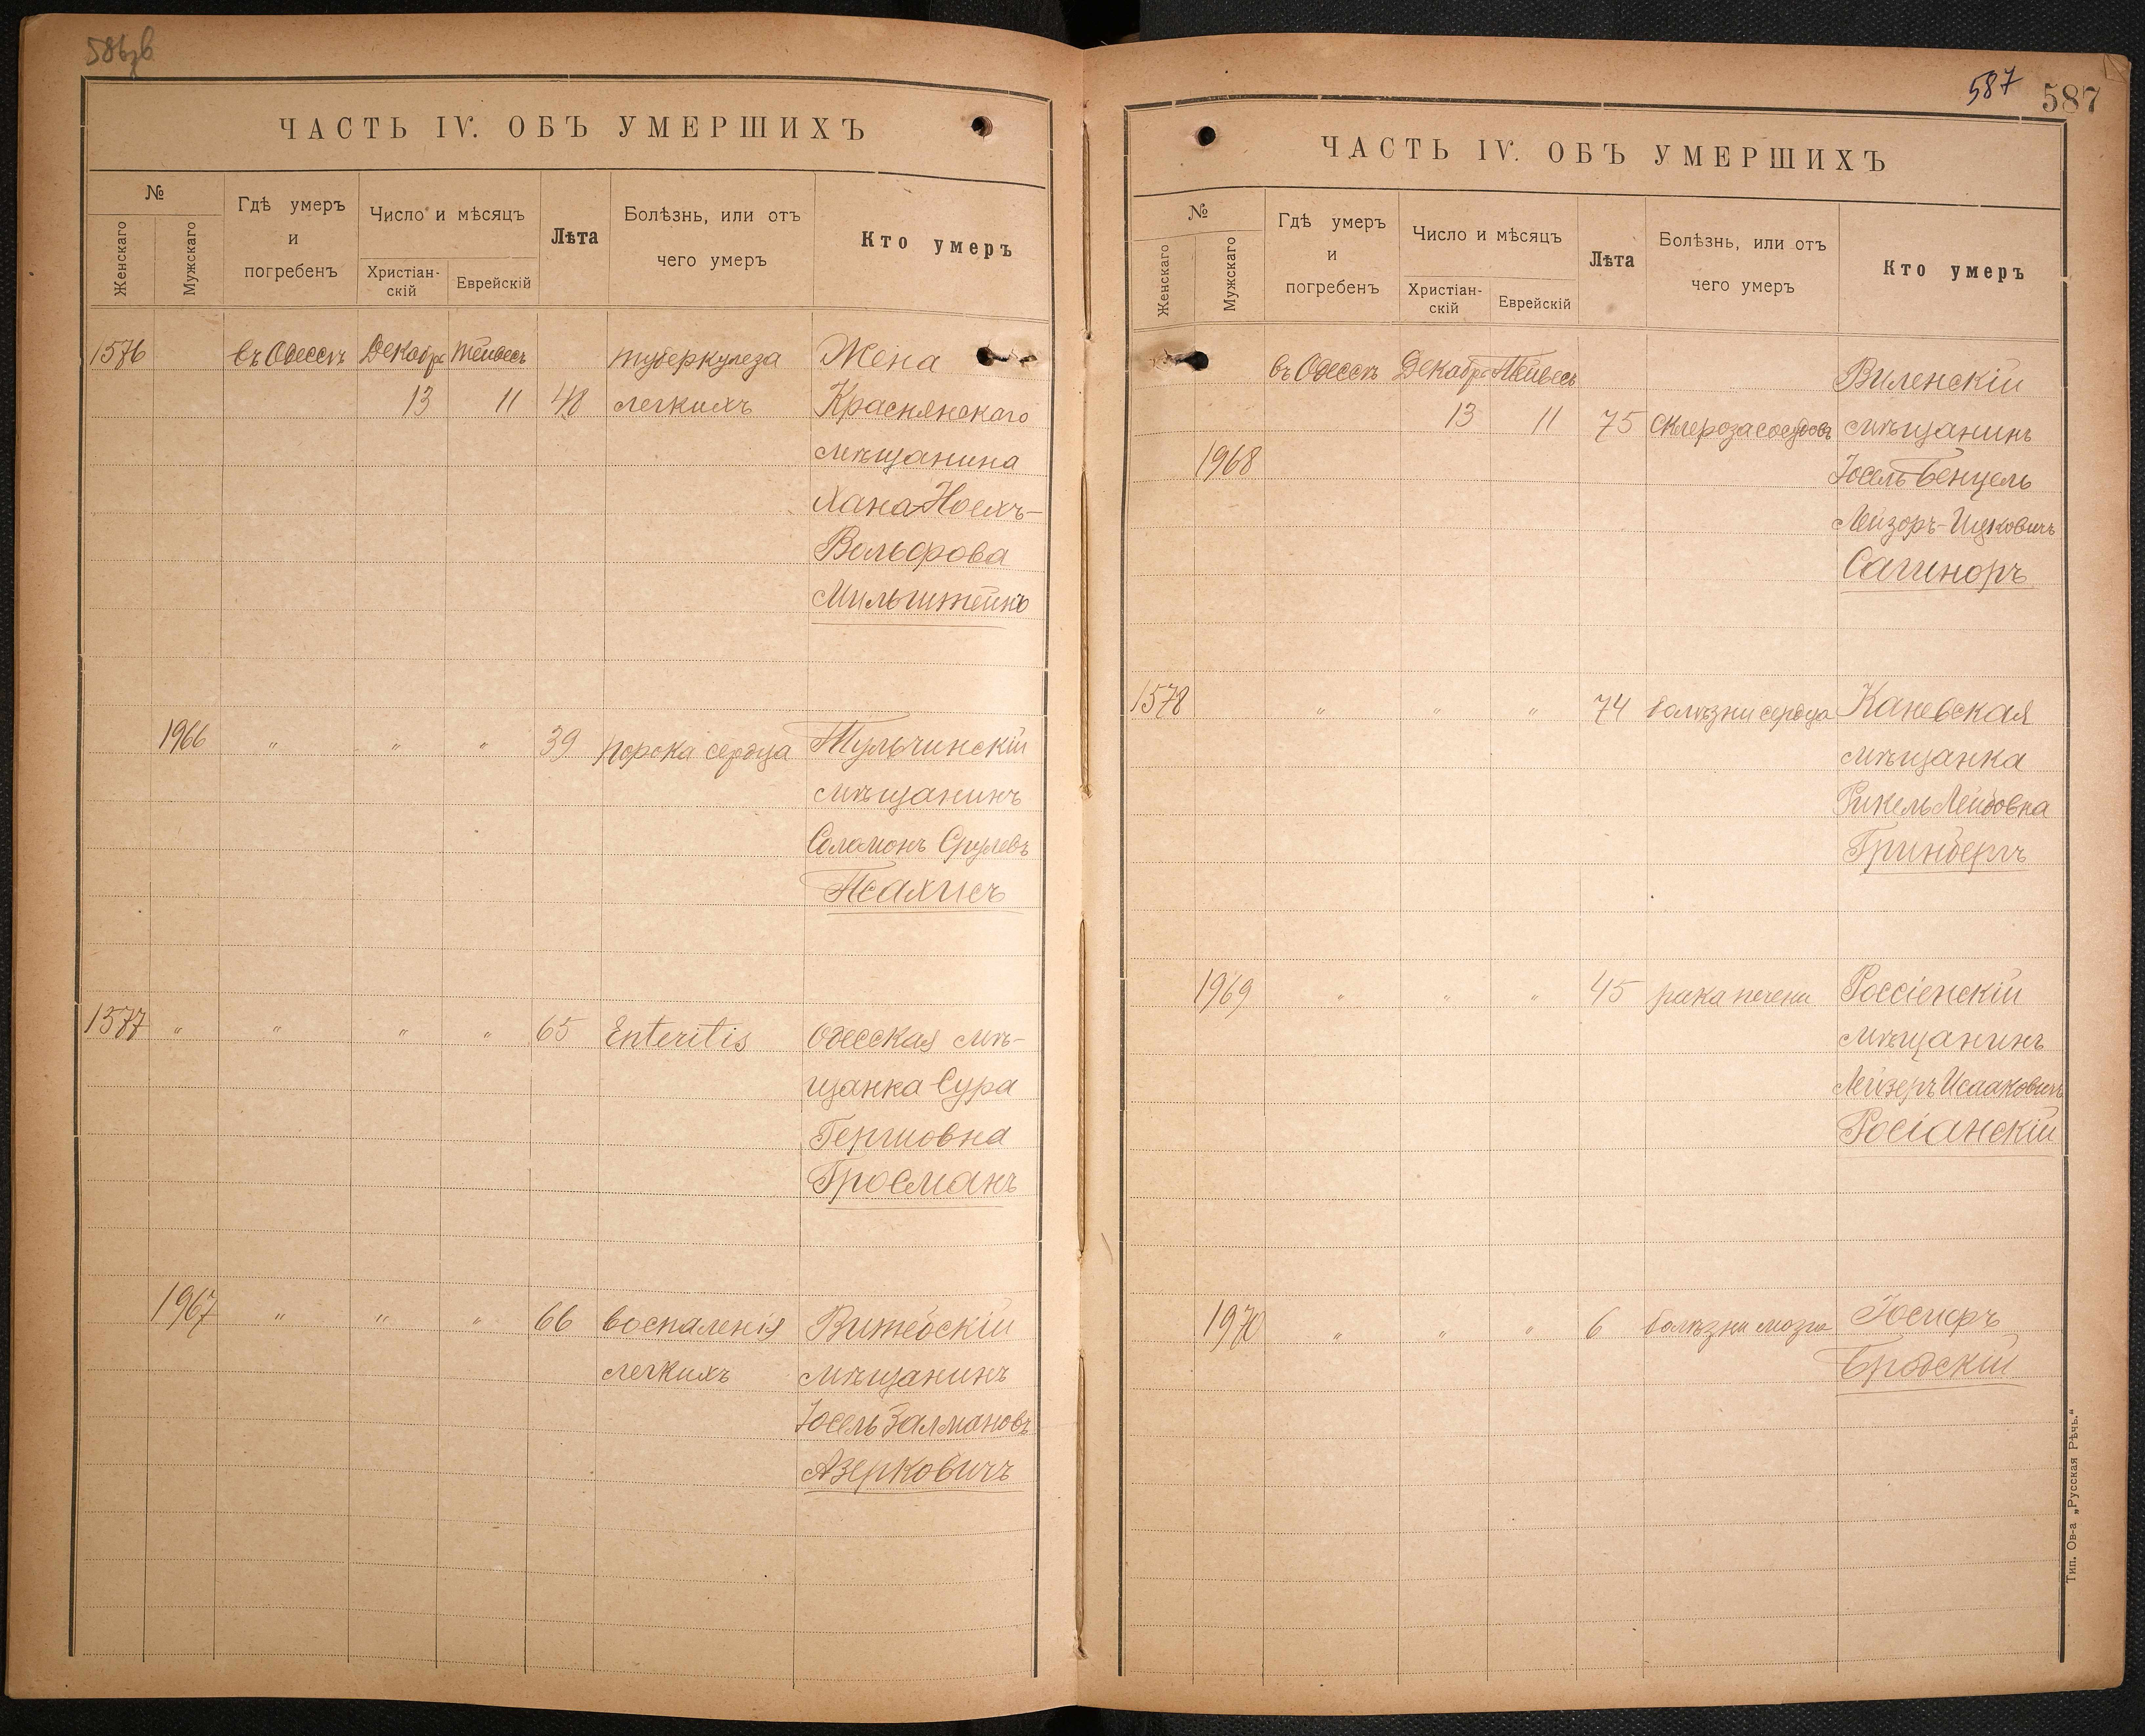 586
ЧАСТЬ IV. ОБЪ УМЕРШИХЪ
№
Женскаго
Мужскаго
Гдѣ умеръ
и
погребенъ
Число и мѣсяцъ
Христіан-
скій
Еврейскій
Лѣта
Болѣзнь, или отъ
чего умеръ
Кто умеръ
1576 въ Одессѣ Декабр Тейвесъ туберкулеза Жена
13 11 48 легкихъ Краснянскаго
мѣщанина
Хана Ноехъ-
Вольфова
Мильштейнъ
1966 " " " 39 порока сердца Тульчинскій
мѣщанинъ
Соломонъ Срулевъ
Псахисъ
1577 " " " " 65 Enteritis Одесская мѣ-
щанка Сура
Гершовна
Гросманъ
1967 " " " 66 воспаленія Витебскій
легкихъ мѣщанинъ
Іосель Залмановъ
Азерковичъ
587 587
ЧАСТЬ IV. ОБЪ УМЕРШИХЪ
№
Женскаго
Мужскаго
Гдѣ умеръ
и
погребенъ
Число и мѣсяцъ
Христіан-
скій
Еврейскій
Лѣта
Болѣзнь, или отъ
чего умеръ
Кто умеръ
въ Одессѣ Декабр Тейвесъ Виленскій
13 11 75 склероза сосудовъ мѣщанинъ
1968 Іосель Бенцель
Лейзоръ-Ицковичъ
Сагиноръ
1578 " " " 74 болѣзни сердца Каневская
мѣщанка
Рикель Лейбовна
Гринбергъ
1969 " " " 45 рака печени Россіенскій
мѣщанинъ
Лейзеръ Исааковичъ
Росіанскій
1970 " " " 6 болѣзни мозга Іосифъ
Бродскій
Тип. Ов-а „Русская Рѣчь."